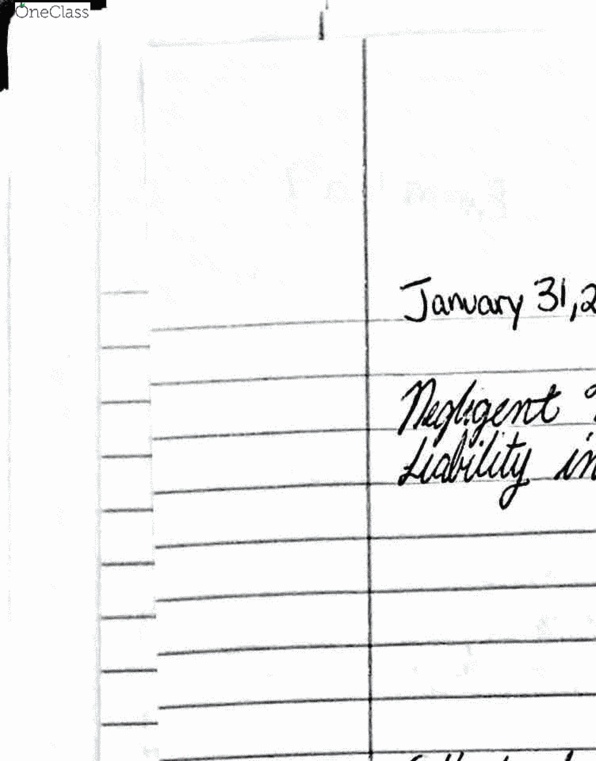 OneClass
January 31, 2
Negligent
Liability in